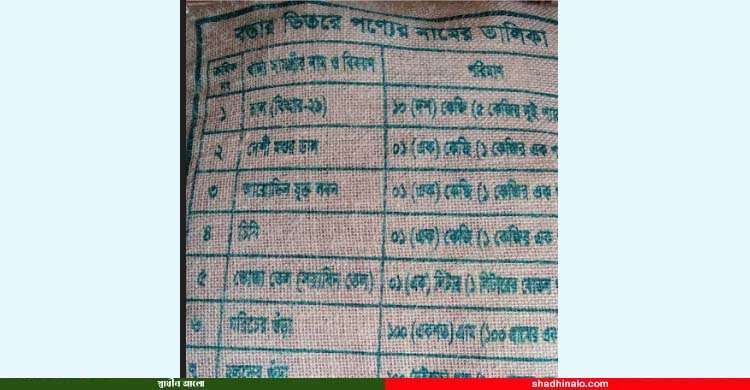 বস্তার ভিতরে পণ্যের নামের তালিকা
ক্রমিক নং খাদ্য সামগ্রীর নাম ও বিবরণ পরিমাণ
১ চাল (বিআর-২৯) ১০ (দশ) কেজি (৫ কেজির দুই
২ দেশী মশুর ডাল ০১ (এক) কেজি (১ কেজির এক
৩ আয়োডিন যুক্ত লবন ০১ (এক) কেজি (১ কেজির এক
৪ চিনি ০১ (এক) কেজি (১ কেজির এক
৫ ভোজ্য তেল (সয়াবিন তেল) ০১ (এক) লিটার (১ লিটারের বোতল
৬ মরিচের গুঁড়া ১০০ (একশত) গ্রাম (১০০ গ্রামের এক
স্বাধীন আলো
shadhinalo.com